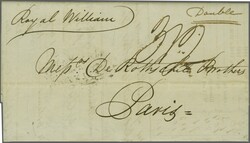 Royal William
Double
Mess^rs De Rothschild Brothers
Paris =